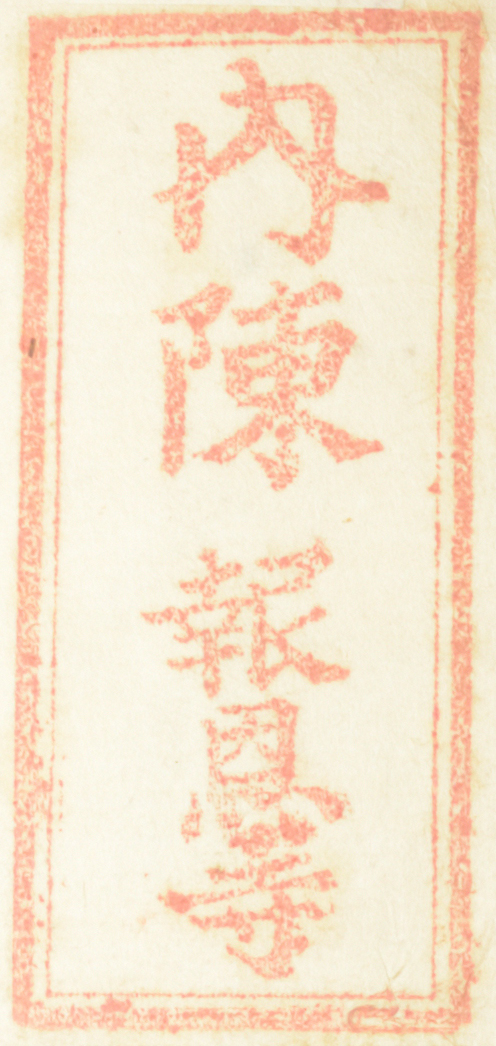 内陳報恩寺